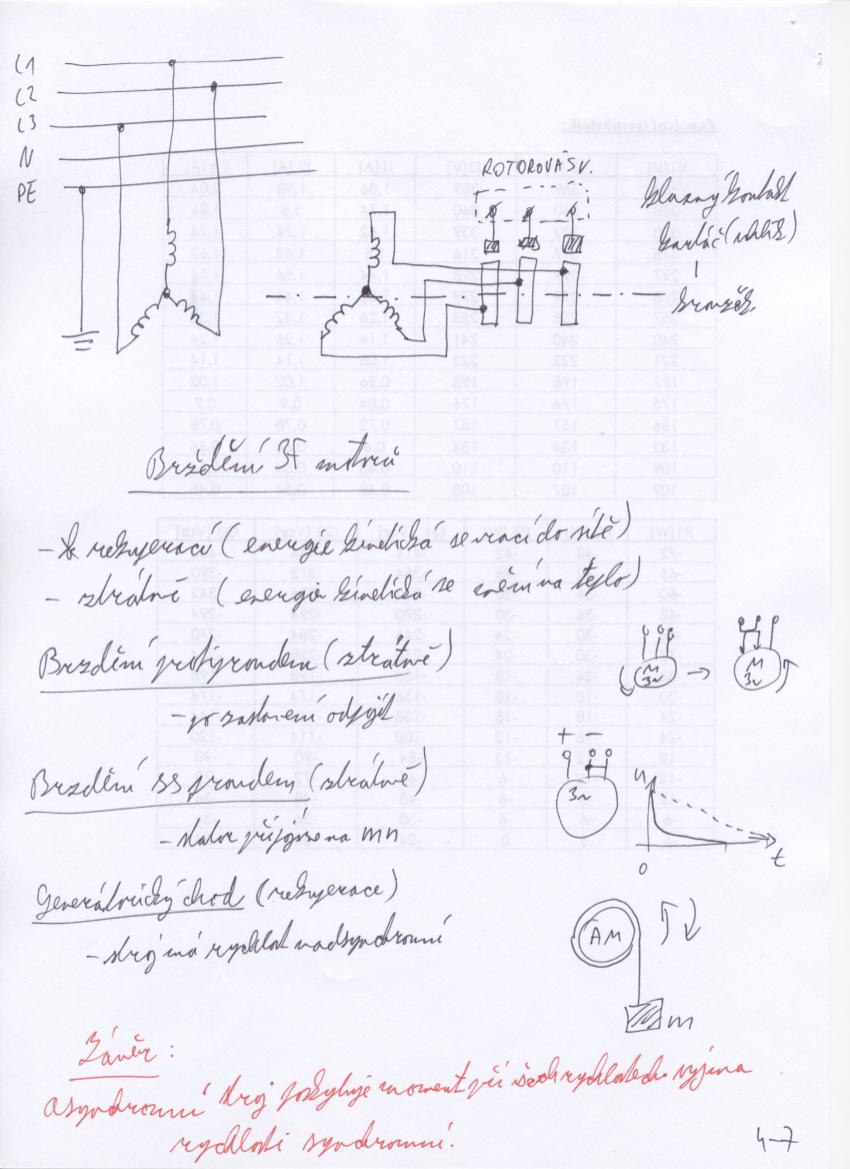 L1
L2
L3
N
PE
ROTOROVÁ SV.
kluzný kontakt
kartáč (uhlík)
kroužek
Brždění 3f motorů
- rekuperací (energie kinetická se vrací do sítě)
- ztrátově (energie kinetická se mění na teplo)
Brzdění protiproudem (ztrátově)
M 3~ → M 3~
- po zastavení odpojit
+ -
Brzdění ss proudem (ztrátově)
3~
n
- stator připojíme na mn
0 t
Generátorický chod (rekuperace)
AM
- stroj má rychlost nadsynchronní
m
Závěr:
Asynchronní stroj poskytuje moment při všech rychlostech vyjma
rychlosti synchronní.
4-7